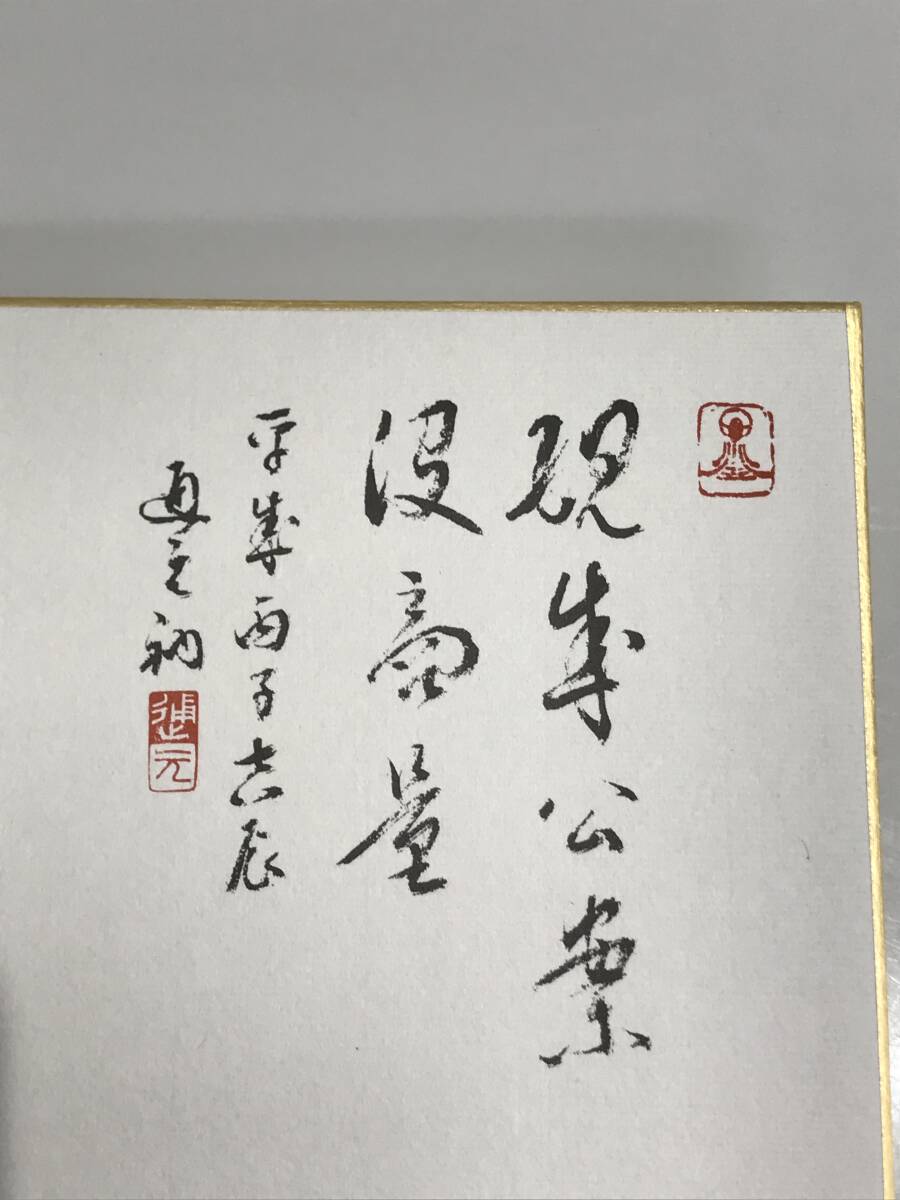 現成公案
没商量
平成丙子吉辰
道元衲